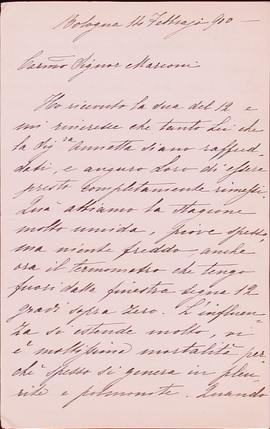 Bologna 14 Febbrajo 900 —
Carmo Signor Marconi
Ho ricevuto la sua del 12 e
mi rincresce che tanto Lei che
la Siga Annetta siano raffred-
dati, e auguro Loro di essere
presto completamente rimessi.
Quà abbiamo la stagione
molto umida, piove spesso,
ma niente freddo, anche
ora il termometro che tengo
fuori dalla finestra segna 12
gradi sopra zero. L'influen-
za si estende molto, vi
è moltissima mortalità per-
chè spesso si genera in pleu-
rite e polmonite. Quando